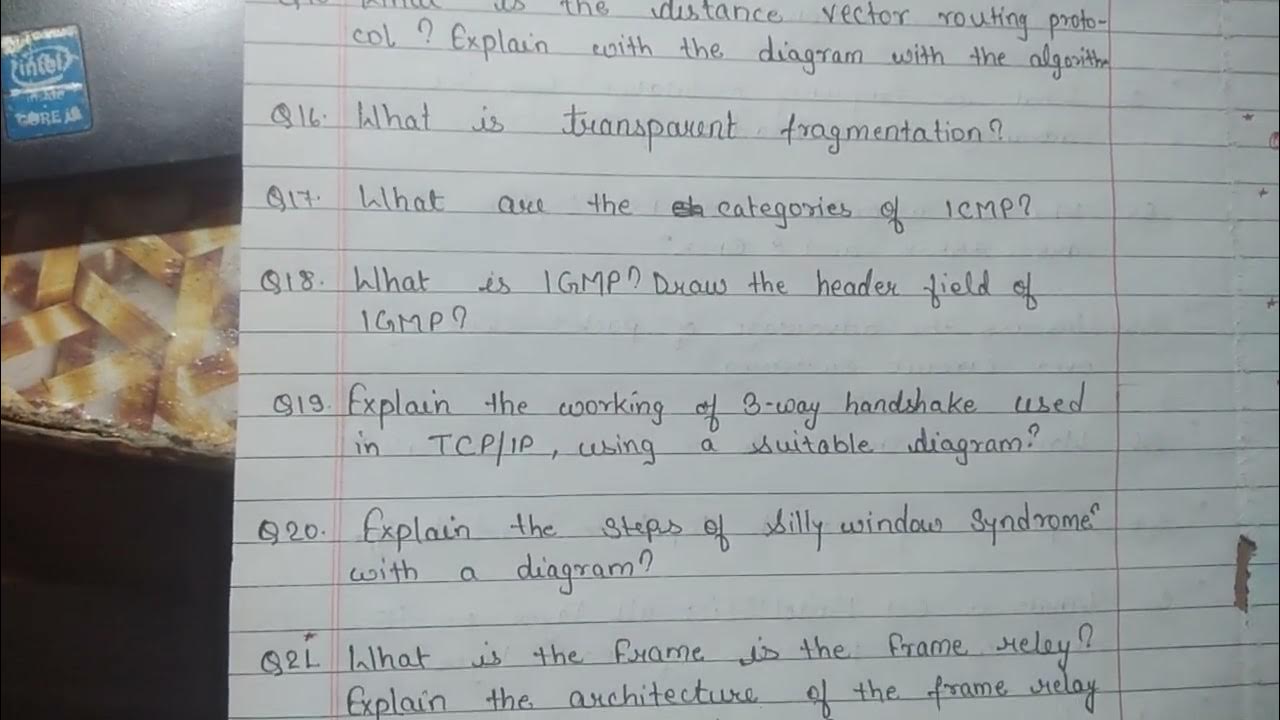 is the distance vector routing proto-
col ? Explain with the diagram with the algorithm
Q16. What is transparent fragmentation?
Q17. What are the categories of ICMP?
Q18. What is IGMP? Draw the header field of
IGMP?
Q19. Explain the working of 3-way handshake used
in TCP/IP, using a suitable diagram?
Q20. Explain the steps of silly window Syndrome
with a diagram?
Q21. What is the frame is the frame reley?
Explain the architecture of the frame relay
intel
inside
CORE i3